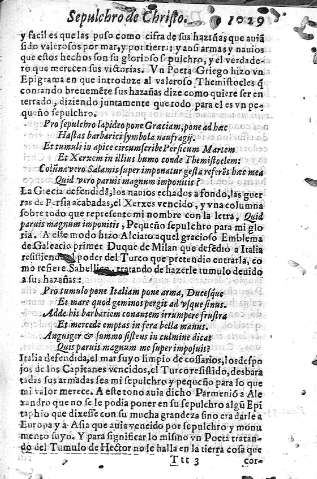 Sepulchro de Christo. 1029
y facil es que las puso como cifra de sus hazañas que auiā
sido valerosos por mar, y por tierra; y ansi armas y nauios
que estos hechos son su glorioso sepulchro, y el verdade-
ro que merecen sus victorias. Vn Poeta Griego hizo vn
Epigrama en que introduze al valeroso Themistocles q̄
contando breuemēte sus hazañas dize como quiere ser en
terrado, diziendo juntamente que todo para el es vn pe-
queño sepulchro.
Pro sepulchro lapideo pone Graeciam, pone ad haec
Hastas barbarici symbola naufragij.
Et tumuli in apice circunscribe Persicum Martem
Et Xerxem in illius humo conde Themistoclem:
Collina vero Salamis super imponatur gesta referēs haec mea
Quid vero paruis magnum imponitis?
La Grecia defendida, los nauios echados a fondo, las guer
ras de Persia acabadas, el Xerxes vencido, y vna columna
sobre todo que represente mi nombre con la letra, Quid
paruis magnum imponitis, Pequeño sepulchro para mi glo
ria. A esse modo hizo Alciato aquel gracioso Emblema
de Galeacio primer Duque de Milan que defēdio a Italia
resistiendo poder del Turco que pretendio entrarla, co
mo refiere Sabellico, tratando de hazerle tumulo deuido
a sus hazañas:
Pro tumulo pone Italiam pone arma, Ducesque
Et mare quod geminos pergit ad vsque sinus.
Adde his barbariem conantem irrumpere frustra
Et mercede emptas in fera bella manus.
Anguiger & summo sistens in culmine dicat
Quis paruis magnum me super imposuit?
Italia defendida, el mar suyo limpio de cossarios, los despo
jos de los Capitanes vencidos, el Turco resistido, desbara
tadas sus armadas sea mi sepulchro y pequeño para lo que
mi valor merece. A esse tono auia dicho Parmenio a Ale
xandro que no se le podia poner en su sepulchro algū Epi
taphio que dixesse con su mucha grandeza sino era darle a
Europa y a Asia que auia vencido por sepulchro y monu
mento suyo. Y para significar lo mismo vn Poeta tratan-
do del Tumulo de Hector no le halla en la tierra cosa que
Ttt 3 cor-